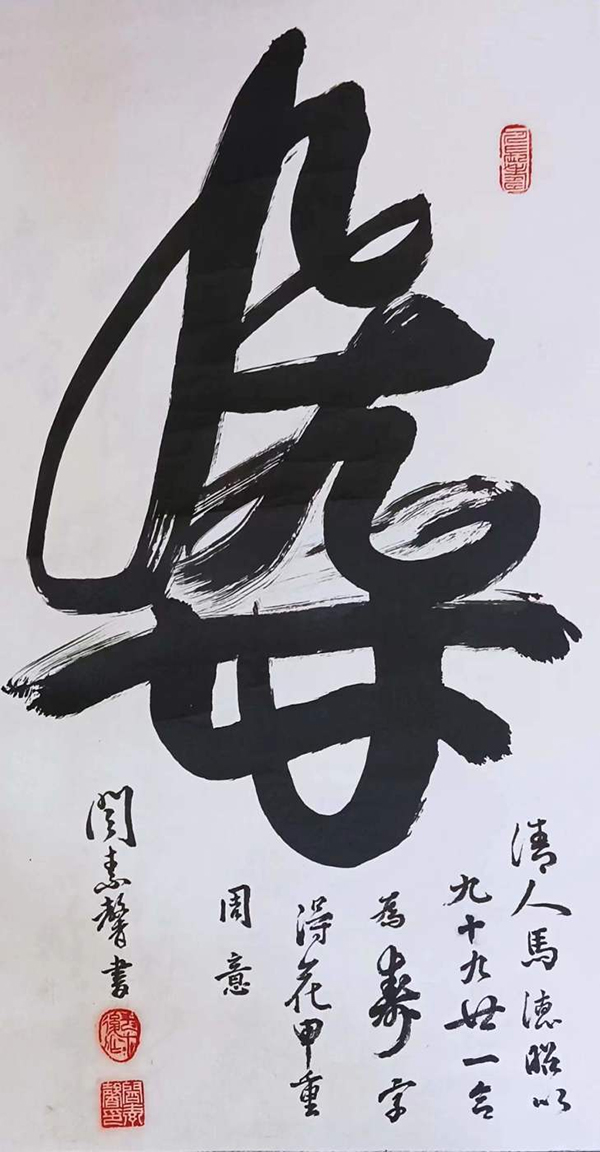 壽
清人馬德昭以
九十九廿一合
為壽字
得花甲重
周意
閆素馨書